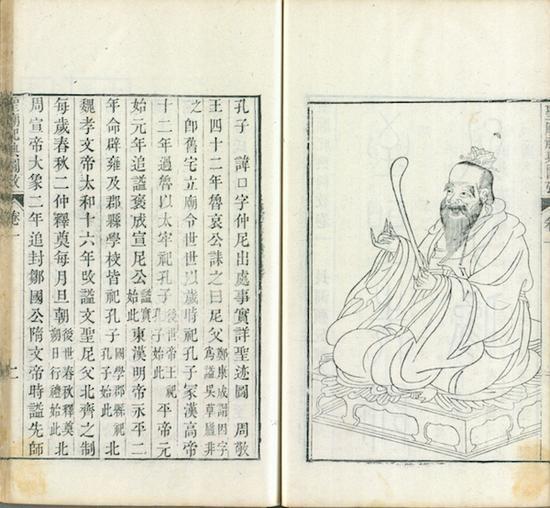 孔子 諱口字仲尼出處事實詳聖迹圖 周敬
王四十二年魯哀公誄之曰尼父 鄭康成謂因字為諡吳草廬非
之 即舊宅立廟令世世以歲時祀孔子冢漢高帝
十二年過魯以太牢祀孔子 後世帝王祀孔子始此 平帝元
始元年追諡褒成宣尼公 諡實始此 東漢明帝永平二
年命辟雍及郡縣學校皆祀孔子 國學郡縣祀孔子始此 北
魏孝文帝太和十六年改諡文聖尼父北齊之制
每歲春秋二仲釋奠每月旦朝 後世春秋釋奠朔日行禮始此 北
周宣帝大象二年追封鄒國公隋文帝時諡先師
聖廟祀典圖攷 卷一 二